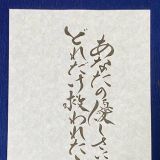 あなたの優しさに
どれだけ救われたか